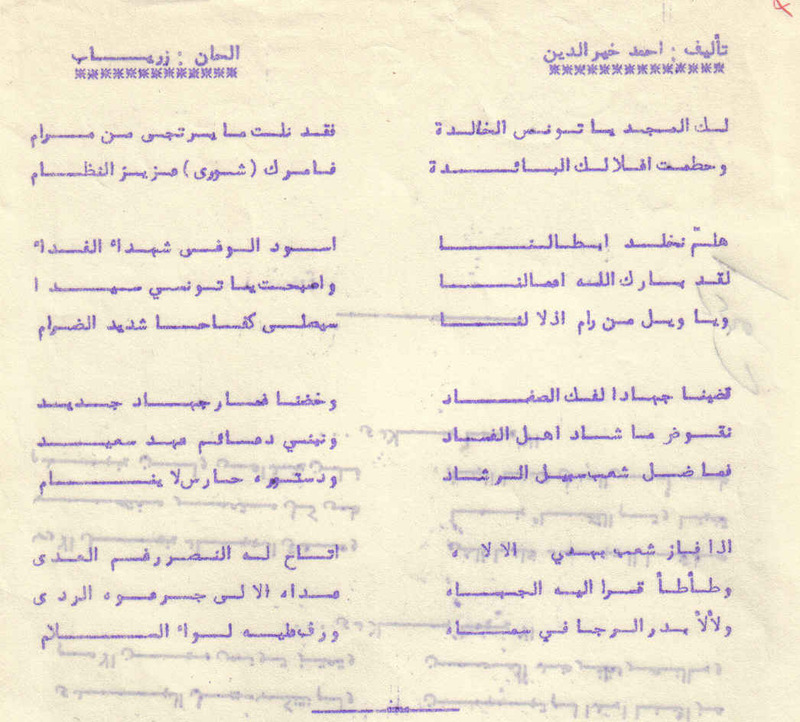 تأليف : احمد خير الدين الحان : زرياب
لك المجد يا تونس الخالدة فقد نلت ما يرتجى من مرام
وحطمت اغلالك البائدة فامرك (شورى) عزيز النظام
هلمّ نخلد ابطالنا اسود الوغى شهداء الفداء
لقد بارك الله اعمالنا واصبحت يا تونسي سيدا
ويا ويل من رام اذلالنا سيصلى كفاحا شديد الضرام
قضينا جهادا لفك الصفاد وخضنا غمار جهاد جديد
نقوض ما شاد اهل الفساد ونبني دعائم عهد سعيد
فما ضل شعب سبيل الرشاد ودستوره حارس لا ينام
اذا فاز شعب بهدي الالاه اتاح له النصر رغم العدى
وطأطأ قسرا اليه الجباه عداه الالى جرعوه الردى
ولألأ بدر الرجا في سماه ورف عليه لواء السلام